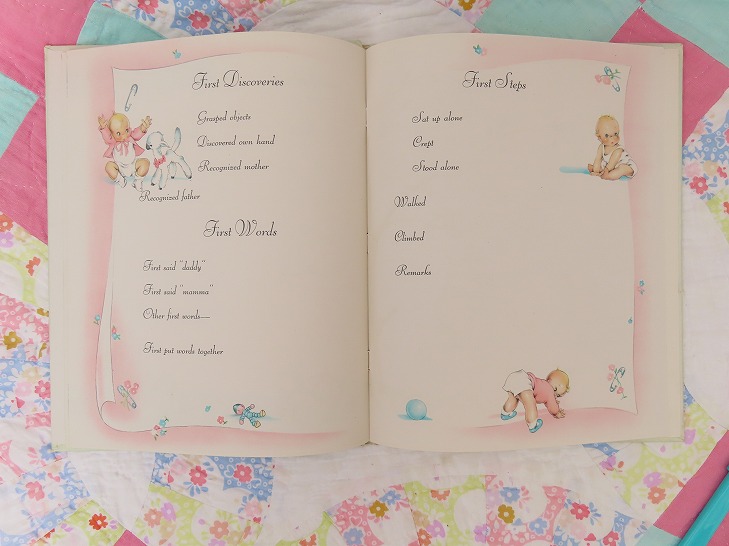 First Discoveries
Grasped objects
Discovered own hand
Recognized mother
Recognized father
First Words
First said "daddy"
First said "mamma"
Other first words—
First put words together
First Steps
Sat up alone
Crept
Stood alone
Walked
Climbed
Remarks